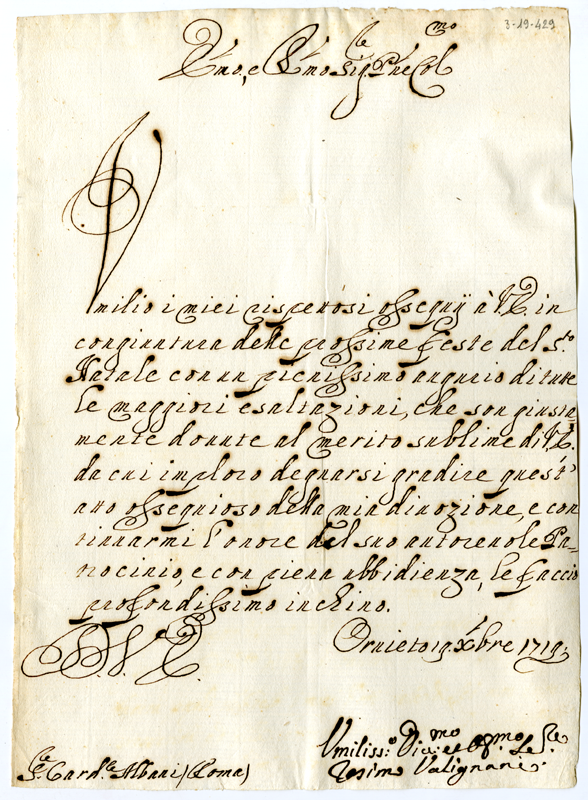 3-19-429
Emo, e Rmo Sig.le Pne Col mo
Vmilio i miei rispettosi ossequÿ à V.E. in
congiuntura delle prossime feste del S.to
Natale con un pienissimo augurio di tutte
le maggiori esaltazioni, che son giusta=
mente dovute al merito sublime di V.E.
da cui imploro degnarsi gradire quest'
atto ossequioso della mia divozione, e con
tinuarmi l'onore del suo autorevole Pa=
trocinio, e con piena ubbidienza, le faccio
profondissimo inchino.
Di V. E.
Orvieto 19 Xbre 1719.
Vmiliss.o Div: et mo Se
Cosimo Valignani
S. Card.le Albani (Roma)